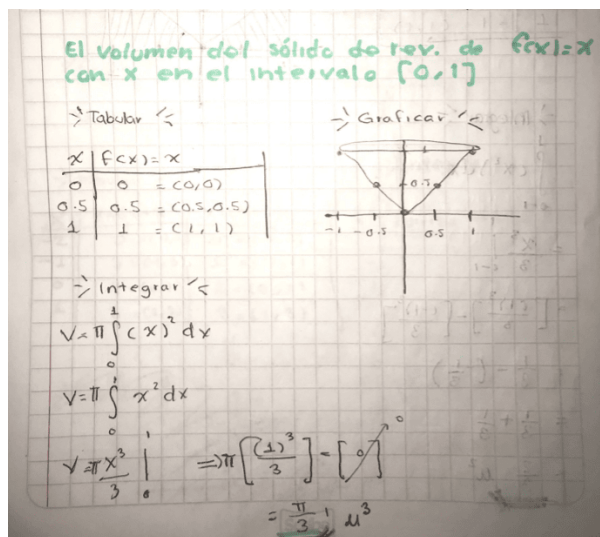 El volumen del sólido de rev. de f(x)=x
con x en el intervalo [0,1]
Tabular
x | f(x)=x
0 | 0 = (0,0)
0.5 | 0.5 = (0.5,0.5)
1 | 1 = (1,1)
Graficar
0.5
-1 -0.5 0.5 1
Integrar
V=π∫₀¹(x)² dx
V=π∫₀¹ x² dx
V=π x³/3 |₀¹ ⇒π[(1)³/3]-[0] 0
= π/3, u³